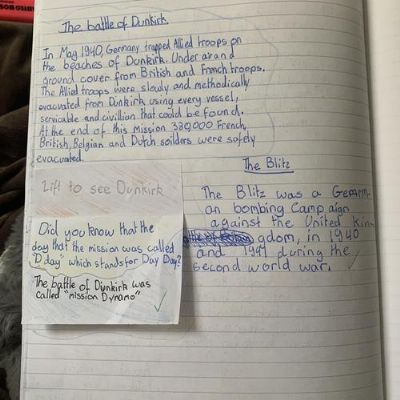 The battle of Dunkirk
In May 1940, Germany trapped Allied troops on
the beaches of Dunkirk. Under air and
ground cover from British and French troops.
The Allied troops were slowly and methodically
evacuated from Dunkirk using every vessel,
servicable and civillian that could be found.
At the end of this mission 330,000 French,
British, Belgian and Dutch soilders were safely
evacuated.
The Blitz
The Blitz was a Germ-
an bombing Campaign
against the United Kin-
gdom, in 1940
and 1941 during the
second world war.
Lift to see Dunkirk
Did you know that the
day that the mission was called
"D day" which stands for Day Day?
The battle of Dunkirk was
called "mission Dynamo"